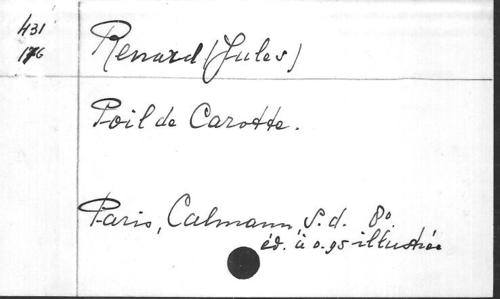 431
176
Renard (Jules)
Poil de Carotte.
Paris, Calmann, S.d. 8o.
éd. à 0.95 illustrée